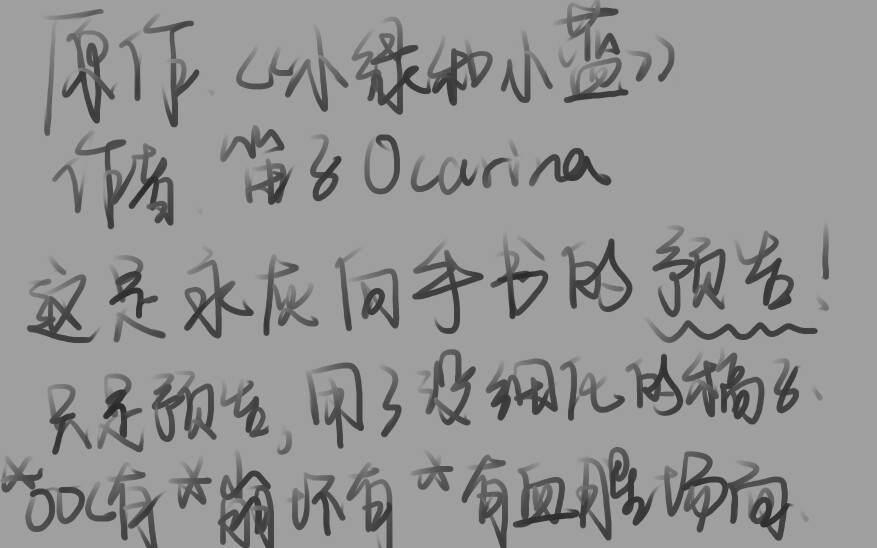 原作.《小绿和小蓝》
作者.笛子Ocarina
这是永灰向手书的预告!
只是预告,用了没细化的稿子.
*OOC有*前坏有*有血腥场面.